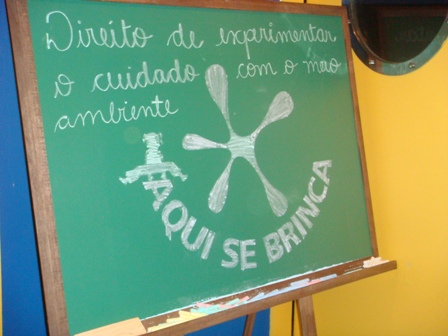 Direito de experimentar
o cuidado com o meio
ambiente
AQUI SE BRINCA